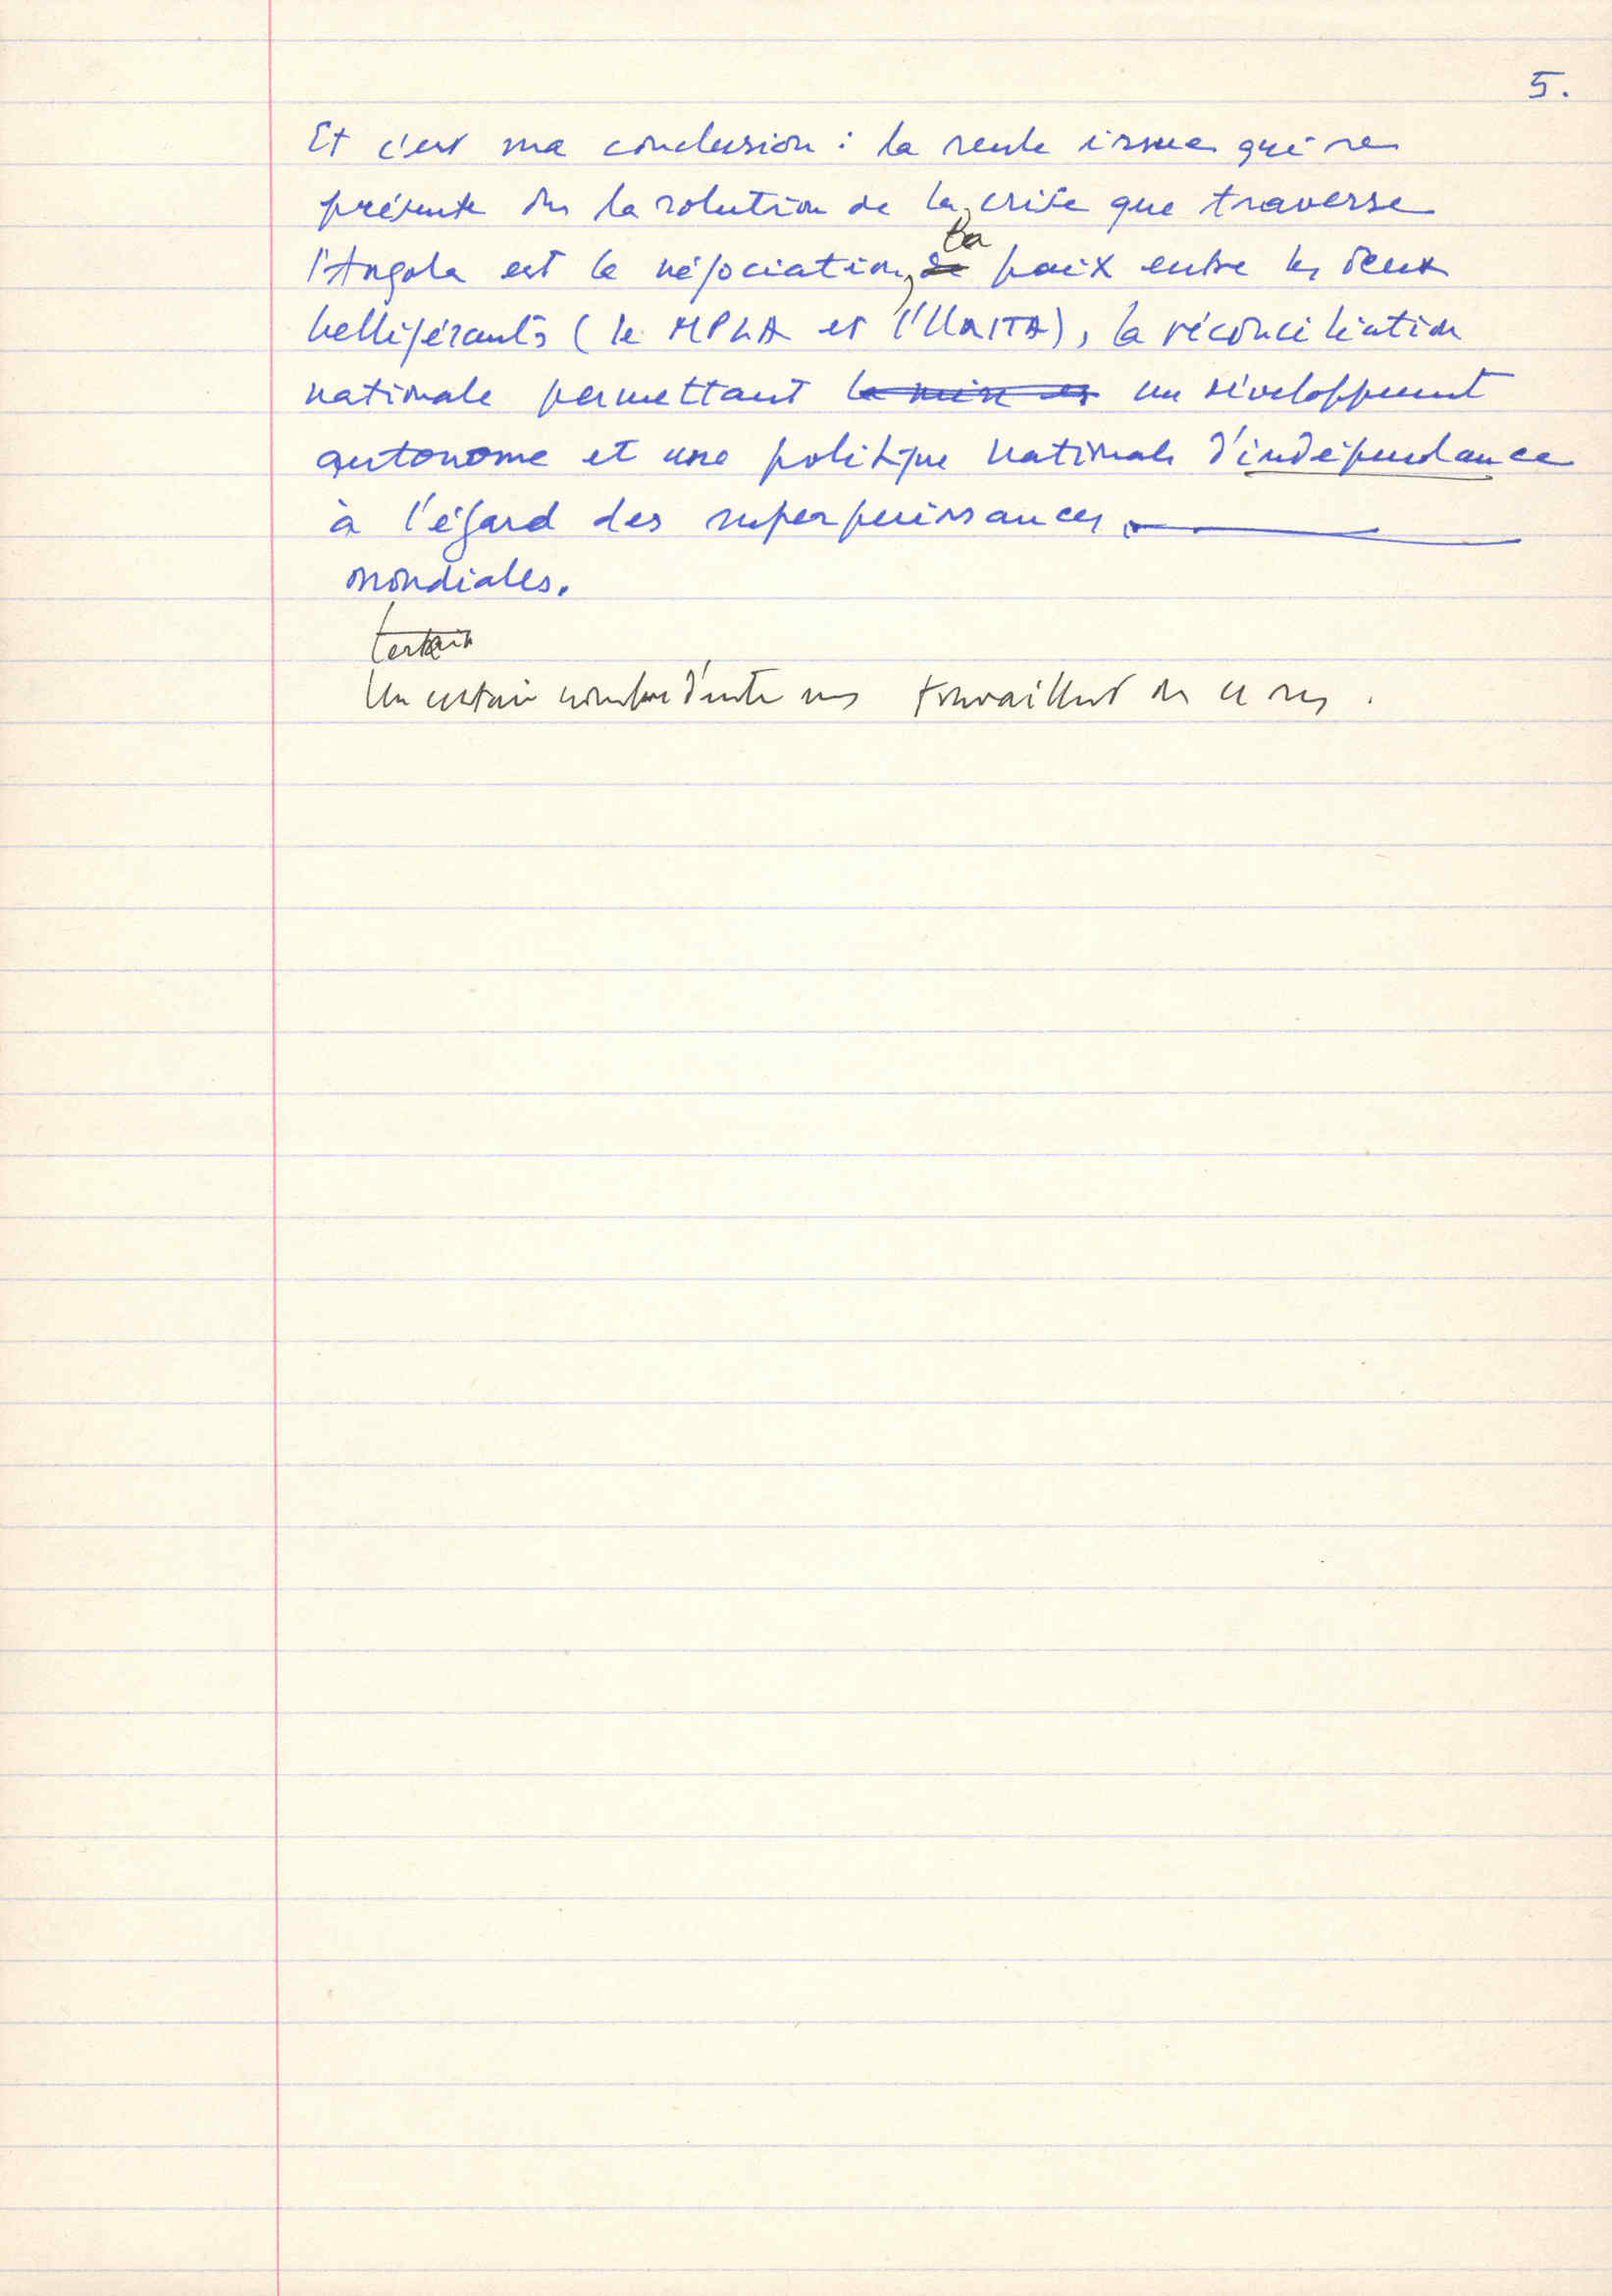 5.
Et c'est ma conclusion : la seule issue qui se
présente ds la solution de la crise que traverse
l'Angola est la négociation, de la paix entre les deux
belligérants (le MPLA et l'UNITA), la réconciliation
nationale permettant la mise en un développement
autonome et une politique nationale d'indépendance
à l'égard des superpuissances
mondiales.
Certain
Un certain nombre d'entre nous travaillent ds ce sens.